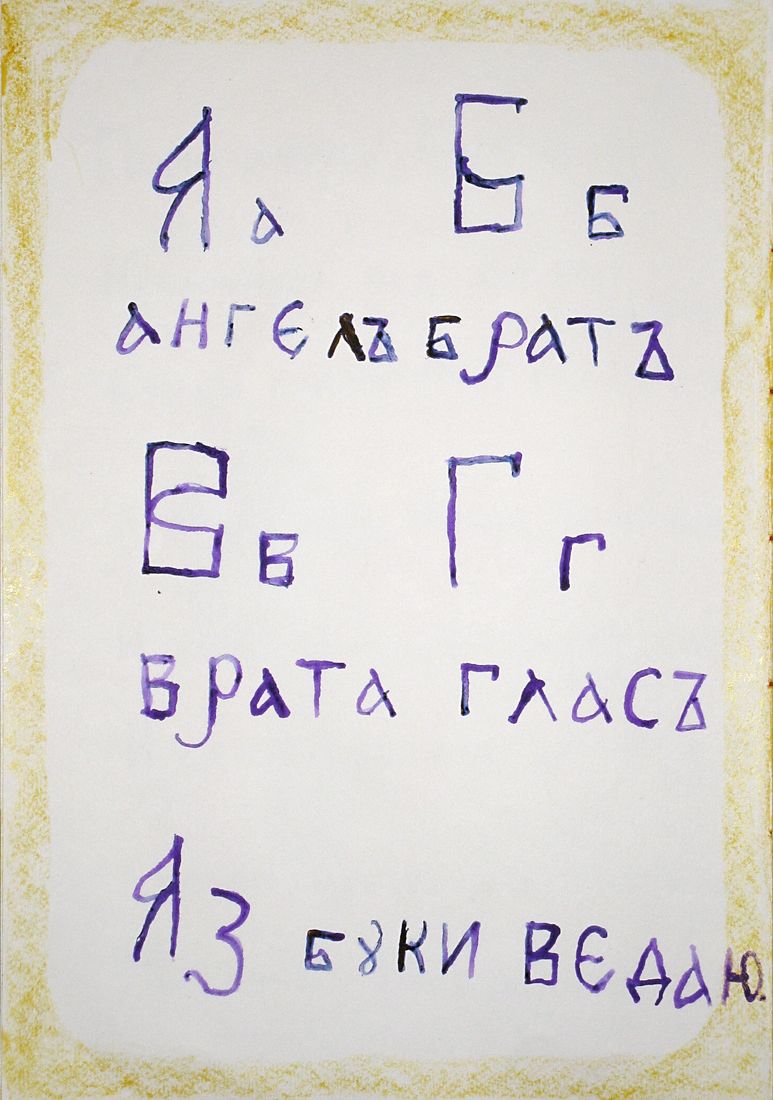 Аа Бб
ангєлъ братъ
Вв Гг
врата гласъ
Аз бꙋки вєдаю.